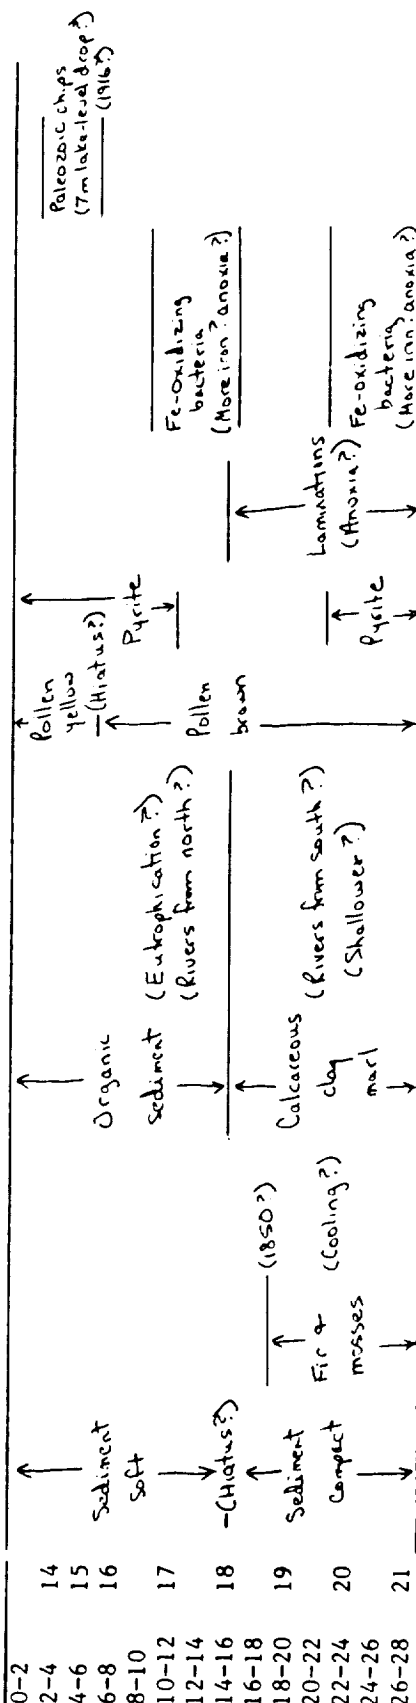 0-2
2-4 14
4-6 15
6-8 16
8-10
10-12 17
12-14
14-16 18
16-18
18-20 19
20-22
22-24 20
24-26
26-28 21
Sediment
Soft
-(Hiatus?)
Sediment
Compact
(1850?)
Fir &
mosses
(Cooling?)
Organic
Sediment
(Eutrophication?)
(Rivers from north?)
Calcareous
clay
marl
(Rivers from south?)
(Shallower?)
Pollen
yellow
-(Hiatus?)
Pollen
brown
Pyrite
Pyrite
Laminations
(Anoxia?)
Fe-oxidizing
bacteria
(More iron? anoxia?)
Fe-oxidizing
bacteria
(More iron? anoxia?)
Paleozoic chips
(7m lake-level drop?)
(1916?)